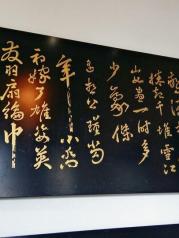 捲起千堆雪江
山如畫一時多
少豪傑
遥想公瑾當
年小喬
初嫁了雄姿英
發羽扇綸巾